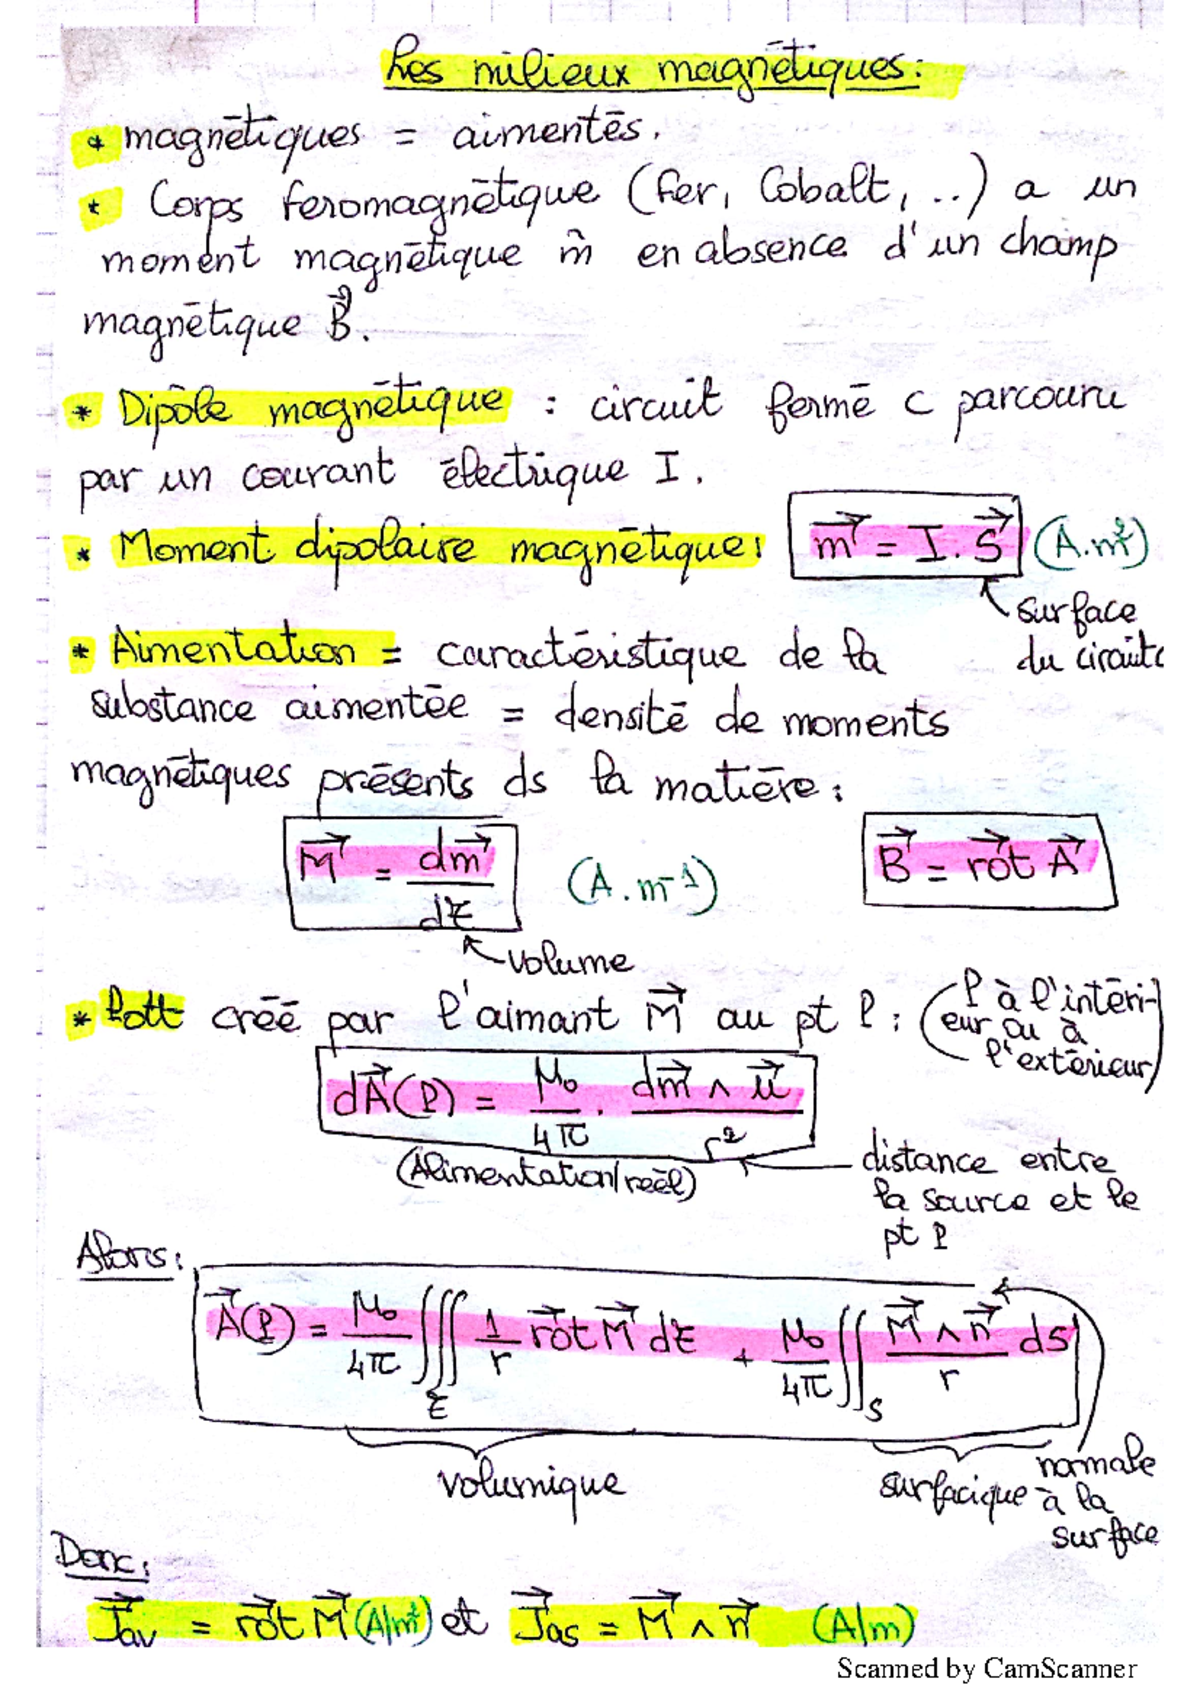 Les milieux magnétiques:
* magnétiques = aimentés.
* Corps feromagnétique (Fer, Cobalt, ..) a un
moment magnétique m⃗ en absence d'un champ
magnétique B⃗.
* Dipôle magnétique : circuit fermé c parcouru
par un courant électrique I.
* Moment dipolaire magnétique: m⃗ = I. S⃗ (A.m²)
surface
du circuit c
* Aimentation = caractéristique de la
substance aimentée = densité de moments
magnétiques présents ds la matière:
M⃗ = dm⃗/dτ (A.m⁻¹) B⃗ = rot⃗ A⃗
volume
* Pott créé par l'aimant M⃗ au pt P: (P à l'intéri-
eur ou à
l'extérieur)
dA⃗(P) = μ₀/4π . dm⃗ ∧ u⃗/r²
(Alimentation/réel)
distance entre
la source et le
pt P
Alors:
A⃗(P) = μ₀/4π ∭_τ 1/r rot⃗ M⃗ dτ + μ₀/4π ∬_S M⃗ ∧ n⃗/r dS
volumique surfacique normale
à la
surface
Donc:
J⃗av = rot⃗ M⃗ (A/m²) et J⃗as = M⃗ ∧ n⃗ (A/m)
Scanned by CamScanner